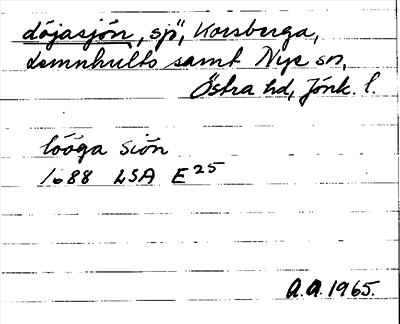 döjasjön, sjö, Korsberga,
Lemnhults samt Nye sn,
Östra hd, Jönk. l.
lööga Siön
1688 LSA E 25
A.A. 1965.